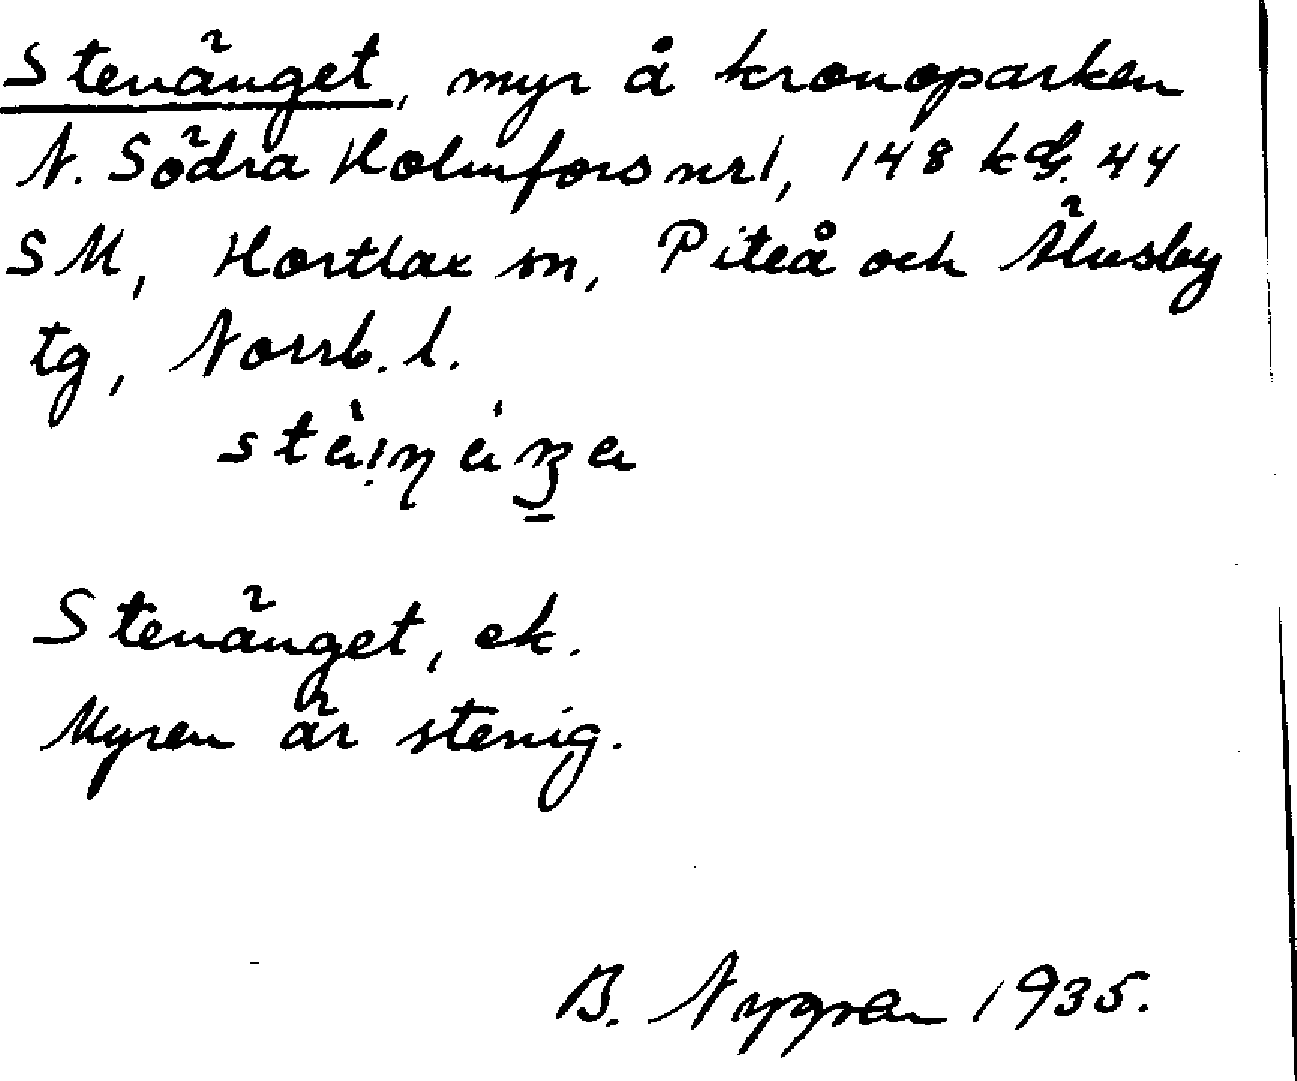 Stenänget, myr å kronoparken
N. Södra Holmfors nr 1, 148 kbl. 44
SM, Hortlax sn, Piteå och Älvsby
tg, Norrb. l.
Stenänget, ek.
Myren är stenig.
B. Nygren 1935.